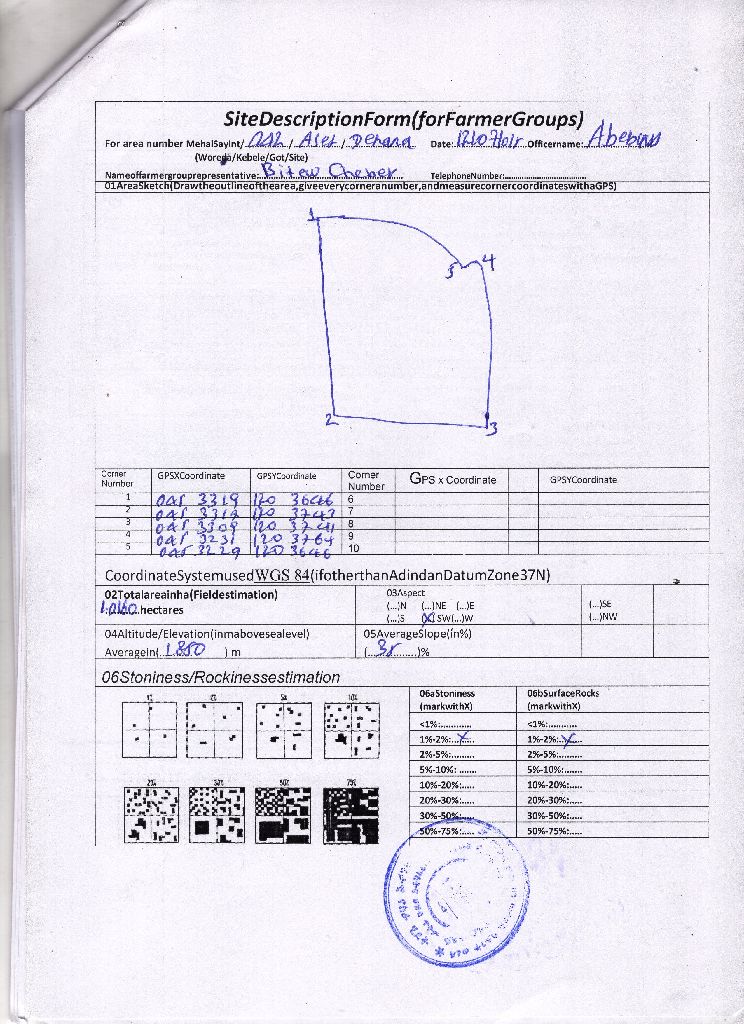 SiteDescriptionForm(forFarmerGroups)
For area number MehalSayint/ 012 / Asef / Dehana Date: Officername: Abebaw
(Woreda/Kebele/Got/Site)
Nameoffarmergrouprepresentative: Bitew Cheber TelephoneNumber:
01AreaSketch(Drawtheoutlineofthearea,giveeverycorneranumber,andmeasurecornercoordinateswithaGPS)
1
5 4
2 3
Corner Number GPSXCoordinate GPSYCoordinate Corner Number GPS x Coordinate GPSYCoordinate
1 3319 120 3646 6
2 3312 120 3743 7
3 3309 120 3741 8
4 3231 120 3764 9
5 3229 120 3646 10
CoordinateSystemusedWGS 84(ifotherthanAdindanDatumZone37N)
02Totalareainha(Fieldestimation) 03Aspect
hectares (...)N (...)NE (...)E (...)SE
(...)S (X) SW(...)W (...)NW
04Altitude/Elevation(inmabovesealevel) 05AverageSlope(in%)
AverageIn(..1850 ) m (...35......)%
06Stoniness/Rockinessestimation
1% 5% 10%
06aStoniness 06bSurfaceRocks
(markwithX) (markwithX)
<1%:........... <1%:...........
1%-2%:..X.... 1%-2%:..X....
2%-5%:........ 2%-5%:......
5%-10%: ....... 5%-10%:......
10%-20%:..... 10%-20%:.....
20%-30%:..... 20%-30%:.....
30%-50%:..... 30%-50%:.....
50%-75%:..... 50%-75%:.....
50% 75%